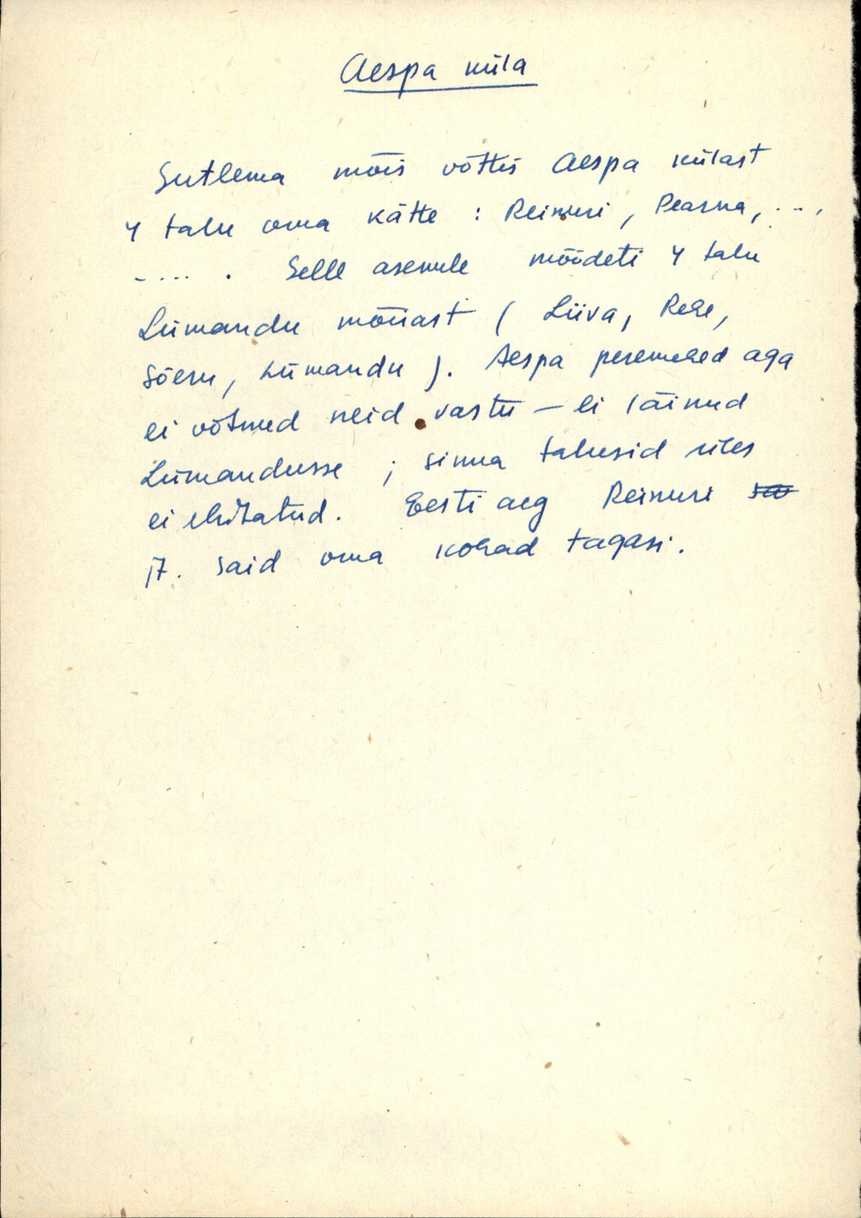 Aespa küla
Sutlema mõis võttis Aespa külast
4 talu oma kätte : Reinuri, Pearna, ...,
..... . Selle asemele mõõdeti 4 talu
Lümandu mõisast ( Liiva, Rehe,
Sõeru, Lümandu ). Aespa peremehed aga
ei võtnud neid vastu – ei läinud
Lümandusse ; sinna talusid üles
ei ehitatud. Eesti aeg Reinuri
jt. said oma kohad tagasi.